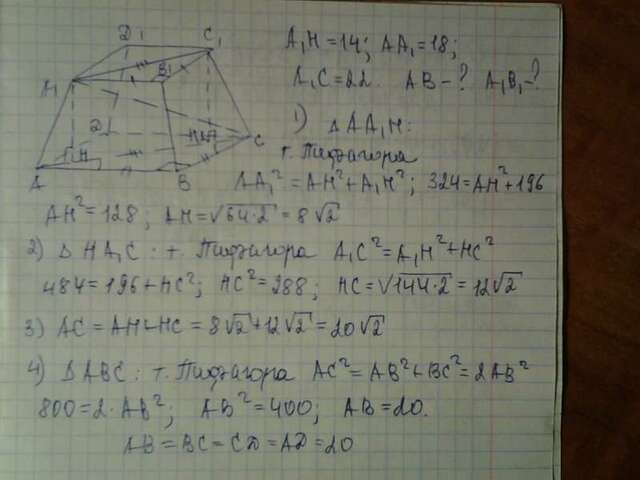 A₁H = 14; AA₁ = 18;
A₁C = 22. AB - ? A₁B₁ - ?
D₁
C₁
A₁
B₁
D
C
H
A
B
1) △AA₁H:
т. Пифагора
AA₁² = AH² + A₁H²; 324 = AH² + 196
AH² = 128; AH = √64·2 = 8√2
2) △HA₁C: т. Пифагора A₁C² = A₁H² + HC²
484 = 196 + HC²; HC² = 288; HC = √144·2 = 12√2
3) AC = AH + HC = 8√2 + 12√2 = 20√2
4) △ABC: т. Пифагора AC² = AB² + BC² = 2AB²
800 = 2·AB²; AB² = 400; AB = 20.
AB = BC = CD = AD = 20